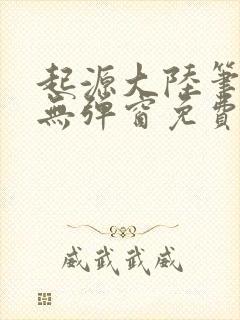 起源大陸筆
無彈窗免費
威武武威